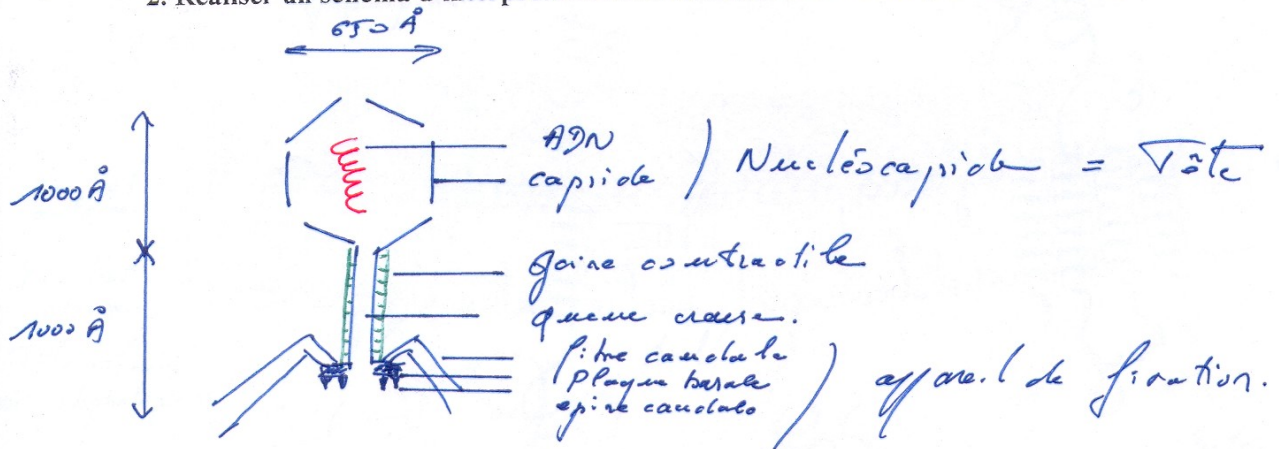 2. Réaliser un schéma d'interpré
650 Å
ADN
capside ) Nucléocapside = Tête
1000 Å
gaine contractile
queue creuse.
1000 Å
fibre caudale
Plaque basale
épine caudale ) appareil de fixation.